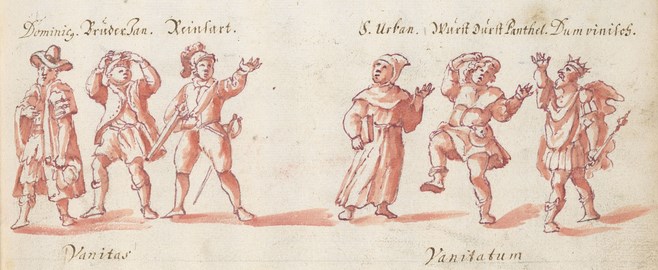 Dominicg. Brüder Jan. Reinhart.
S. Urban. Würst Dürst Panthel. Dumrinisch.
Vanitas
Vanitatum